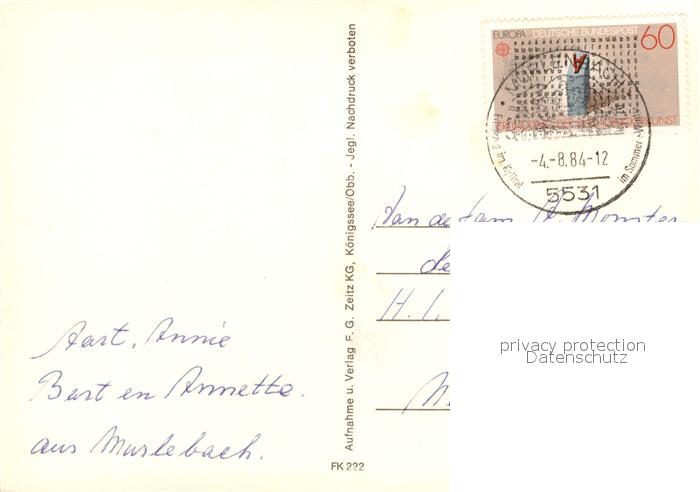 EUROPA DEUTSCHE BUNDESPOST 60
MÜRLENBACH
-4.-8.84-12
5531
im Sommer
Aan de fam
H.
Aart, Annie
Bart en Annette.
aus Murlebach.
Aufnahme u. Verlag F. G. Zeitz KG, Königssee/Obb. - Jegl. Nachdruck verboten
FK 222
privacy protection
Datenschutz